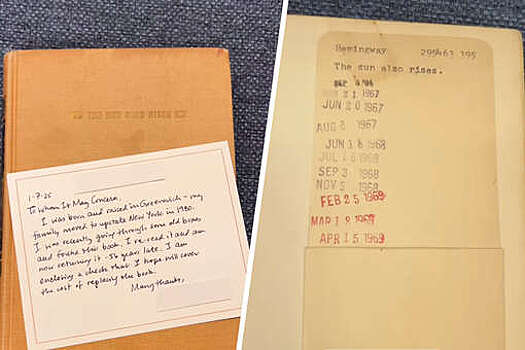 1-7-25
To Whom It May Concern,
I was born and raised in Greenwich - my
family moved to upstate New York in 1980.
I was recently going through some old boxes
and found this book. I've re-read it and am
now returning it - 56 years late. I am
enclosing a check that I hope will cover
the cost of replacing the book.
Many thanks,
Hemingway 295463 395
The sun also rises.
SEP
21 1967
JUN 20 1967
AUG 8 1967
JUN 18 1968
JUL 16 1968
SEP 3 1968
NOV 5 1968
FEB 25 1969
MAR 19 1969
APR 15 1969